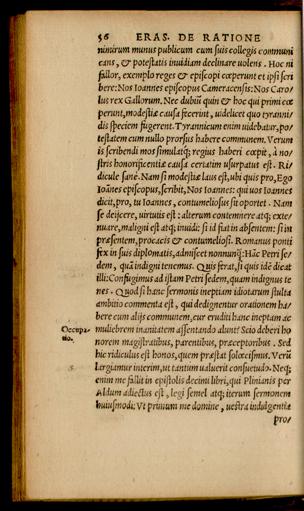 56 ERAS. DE RATIONE
nimirum munus publicum cum suis collegis communi
cans, & potestatis inuidiam declinare uolens. Hoc ni
fallor, exemplo reges & episcopi cœperunt et ipsi scri
bere: Nos Ioannes episcopus Cameracensis: Nos Caro/
lus rex Gallorum. Nec dubiũ quin & hoc qui primi cœ
perunt, modestiæ causa fecerint, uidelicet quo tyranni/
dis speciem fugerent. Tyrannicum enim uidebatur, po/
testatem cum nullo prorsus habere communem. Verum
is scribendi mos simulatq; regius haberi cœpit, à no/
stris honorificentiæ causa certatim usurpatus est. Ri/
dicule sanè. Nam si modestiæ laus est, ubi quis pro, Ego
Ioãnes episcopus, scribit, Nos Ioannes: qui uos Ioannes
dicit, pro, tu Ioannes, contumeliosus sit oportet. Nam
se deijcere, uirtutis est: alterum contemnere atq; exte/
nuare, maligni est atq; inuidi: si id fiat in absentem: si in
præsentem, procacis & contumeliosi. Romanus ponti
fex in suis diplomatis, admiscet nonnunq̃: Hãc Petri se/
dem, quã indigni tenemus. Quis ferat, si quis idẽ dicat
illi: Confugimus ad istam Petri sedem, quam indignus te
nes. Quod si hanc sermonis ineptiam idiotarum stulta
ambitio commenta est, qui dedignentur orationem ha/
bere cum alijs communem, cur eruditi hanc ineptam ac
muliebrem inanitatem assentando alunt? Scio deberi ho
Occupa/
tio.
norem magistratibus, parentibus, præceptoribus. Sed
hic ridiculus est honos, quem præstat solœcismus. Verũ
largiamur interim, ut tantum ualuerit consuetudo. Neq;
enim me fallit in epistolis decimi libri, qui Plinianis per
Aldum adiectus est, legi semel atq; iterum sermonem
huiusmodi: Vt primum me domine, uestra indulgentia
pro/